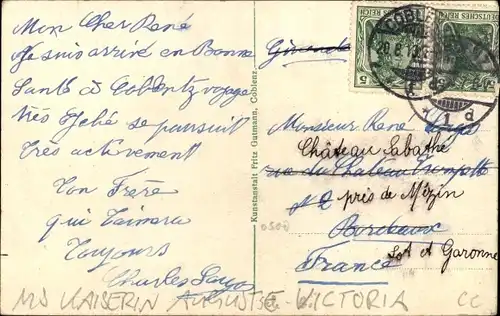 Mon Cher René
Je suis arrivé en Bonne
Santé à Coblentz voyage
très
se poursuit
très activement
Ton Frère
qui t'aimera
Toujours
Charles
Kunstanstalt Fritz Gutmann, Coblenz
DEUTSCHES REICH
5
COBLENZ
1 d
DEUTSCHES REICH
Monsieur René
Château Labathe
rue du Château Trompette
n° 2 près de Mézin
Bordeaux
Lot et Garonne
France
0500
MS KAISERIN AUGUSTE-VICTORIA
CC